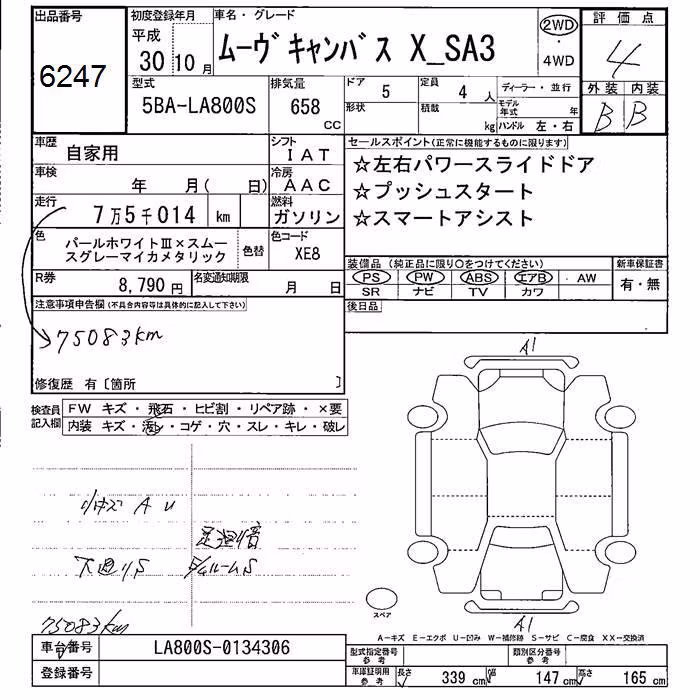 出品番号
6247
初度登録年月
平成
30 10 月
車名・グレード
ムーヴキャンバス X_SA3
2WD
・
4WD
評価点
4
外装 内装
B B
型式
5BA-LA800S
排気量
658
CC
ドア 5
形状
定員 4 人
積載 kg
ディーラー・並行
モデル年式 年
ハンドル 左・右
車歴 自家用
シフト IAT
車検 年 月( 日)
冷房 AAC
走行 7万5千014 km
燃料 ガソリン
色 パールホワイトⅢ×スムー
スグレーマイカメタリック
色替
色コード XE8
R券 8,790 円
名変通知期限 月 日
セールスポイント(正常に機能するものに限ります)
☆左右パワースライドドア
☆プッシュスタート
☆スマートアシスト
装備品(純正品に限り○をつけてください)
PS PW ABS エアB ・ AW
SR ナビ TV カワ
新車保証書
有・無
後日品
注意事項申告欄(不具合内容等は具体的に記入して下さい)
75083km
修復歴 有〔箇所 〕
検査員
記入欄
FW キズ・飛石・ヒビ割・リペア跡・×要
内装 キズ・汚レ・コゲ・穴・スレ・キレ・破レ
A1
小キズ A U
下廻りS
75083km
スペア
A1
A-キズ E-エクボ U-凹み W-補修跡 S-サビ C-腐食 XX-交換済
車台番号 LA800S-0134306
登録番号
型式指定番号
参考
類別区分番号
参考
車庫証明用
参考
長さ 339 cm 幅 147 cm 高さ 165 cm